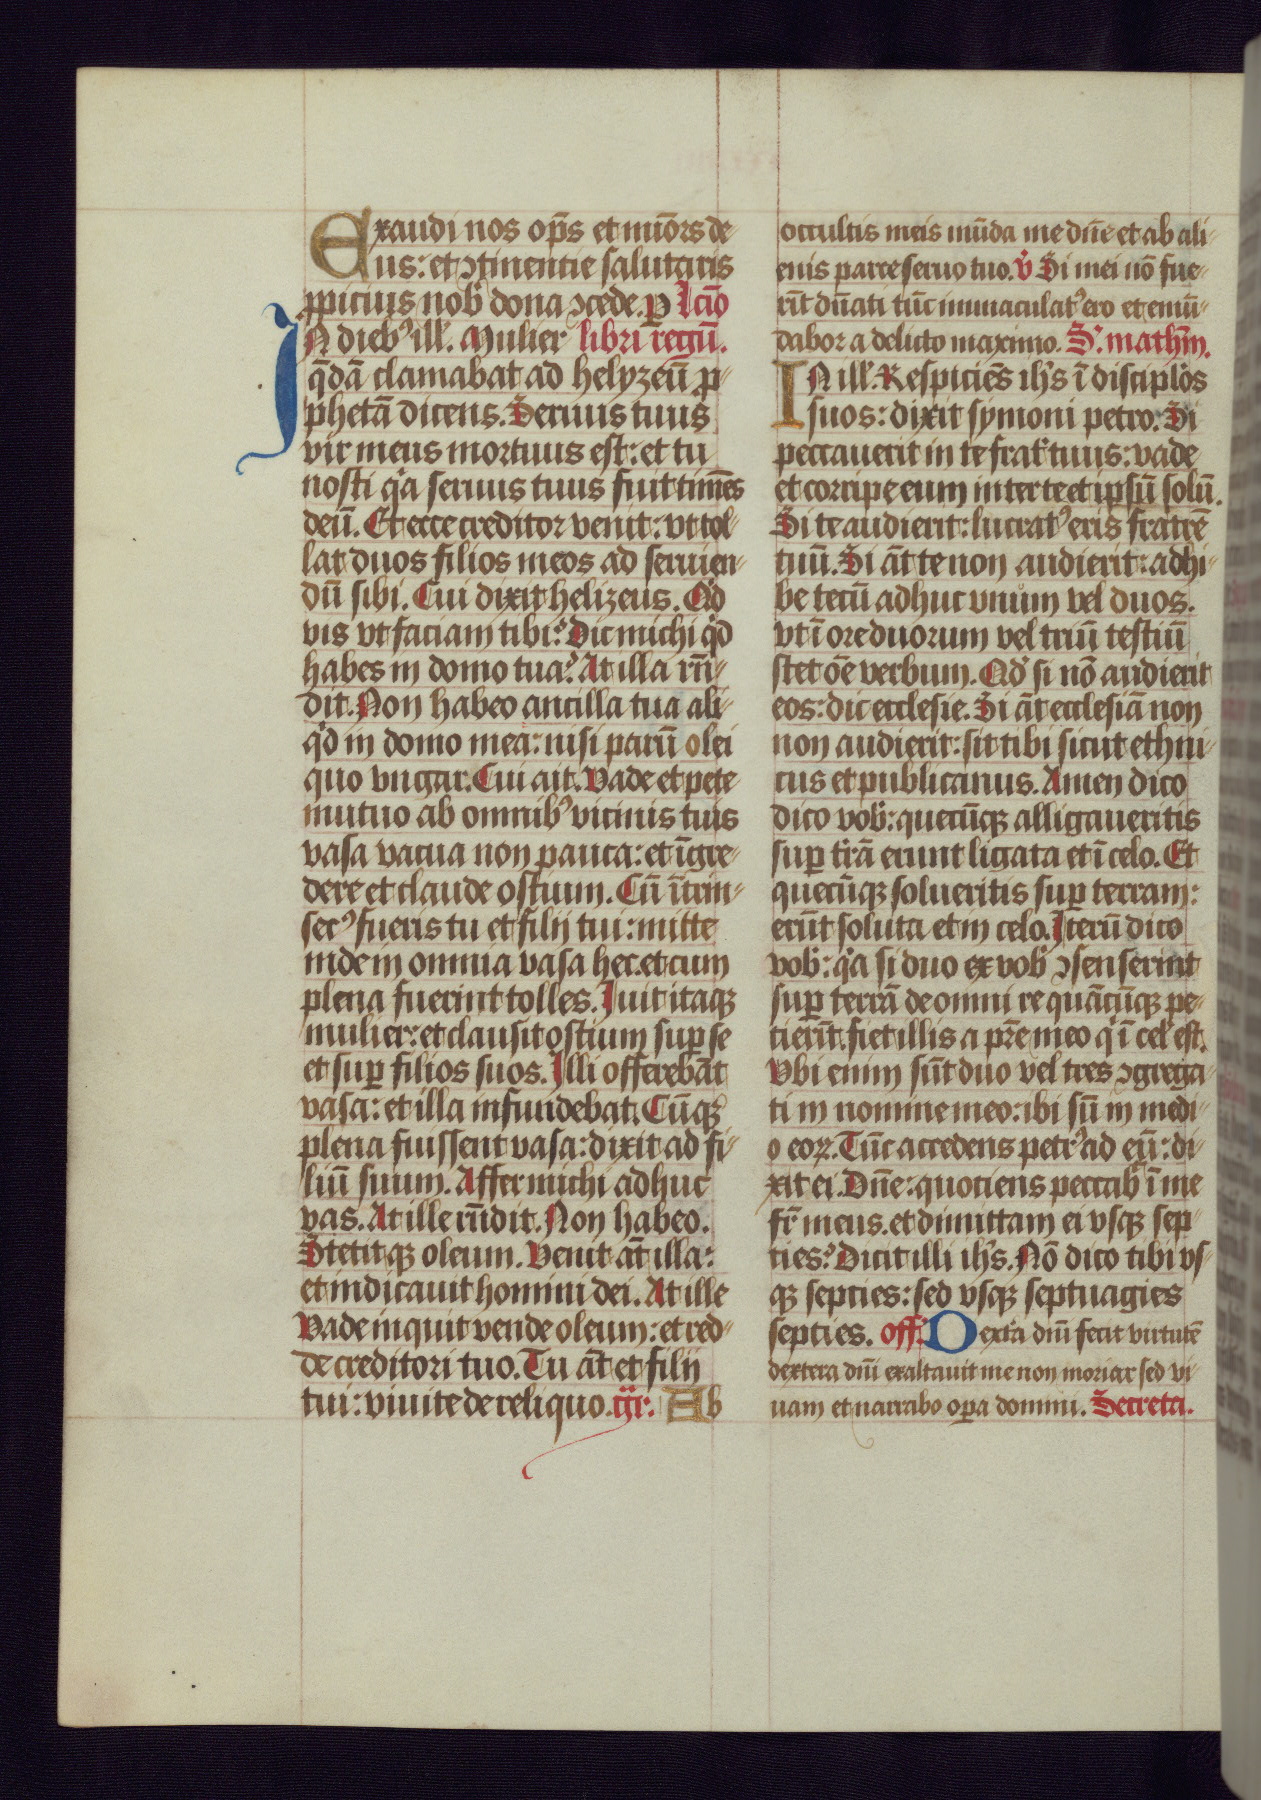 Exaudi nos op̄s et miẜors de
us: et ꝯtinentie salutaris
ꝓpicius nob̉ dona ꝯcede. ꝑ lcīo
IN dieb⁹ ill̉. Mulier libri regū.
q̄dā clamabat ad helyzeū ꝓ-
phetā dicens. Seruus tuus
vir meus mortuus est: et tu
nosti q̉a seruus tuus fuit tim̄es
deū. Et ecce creditor venit: vt tol-
lat duos filios meos ad seruien-
dū sibi. Cui dixit helizeus. Qd̉
vis vt faciam tibi? Dic michi q̉d
habes in domo tua? At illa rn̄-
dit. Non habeo ancilla tua ali-
q̉d in domo mea: nisi parū olei
quo vngar. Cui ait. Vade et pete
mutuo ab omnib⁹ vicinis tuis
vasa vacua non pauca: et īgre-
dere et claude ostium. Cū ītrin-
sec⁹ fueris tu et filii tui: mitte
inde in omnia vasa hec. et cum
plena fuerint tolles. Iuit itaqꝫ
mulier: et clausit ostium suꝑ se
et suꝑ filios suos. Illi offerebāt
vasa: et illa infundebat. Cūqꝫ
plena fuissent vasa: dixit ad fi-
liū suum. Affer michi adhuc
vas. At ille rn̄dit. Non habeo.
Stetitqꝫ oleum. Venit āt illa:
et indicauit homini dei. At ille
Vade inquit vende oleum: et red-
de creditori tuo. Tu āt et filii
tui: viuite de reliquo. gr̄. Ab
occultis meis mūda me dn̄e et ab ali-
enis parce seruo tuo. v̉ Si mei nō fue-
rīt dn̄ati tūc immaculat⁹ ero et emū-
dabor a delicto maximo. S. mathm̄.
IN ill̉. Respiciēs ih̄s ī discipl̉os
suos: dixit symoni petro. Si
peccauerit in te frat̉ tuus: vade
et corripe eum inter te et ipsū solū.
Si te audierit: lucrat⁹ eris fratrē
tuū. Si āt te non audierit: adhi-
be tecū adhuc vnum vel duos.
vt ī ore duorum vel triū testiū
stet oē verbum. Qd̉ si nō audierit
eos: dic ecclesie. Si āt ecclesiā non
non audierit: sit tibi sicut ethni-
cus et publicanus. Amen dico
dico vob̉: quecūqꝫ alligaueritis
suꝑ t̉rā erunt ligata et ī celo. Et
quecūqꝫ solueritis suꝑ terram:
erūt soluta et in celo. Iterū dico
vob̉: q̉a si duo ex vob̉ ꝯsenserint
suꝑ terrā de omni re quācūqꝫ pe-
tierīt. fiet illis a pr̄e meo q̉ ī cel̉ est.
Vbi enim sūt duo vel tres ꝯgrega-
ti in nomine meo: ibi sū in medi-
o eoꝝ. Tūc accedens petr⁹ ad eū: di-
xit ei. Dn̄e: quotiens peccab̉ ī me
fr̄ meus. et dimittam ei vsqꝫ sep-
ties? Dicit illi ih̄s. Nō dico tibi vs-
qꝫ septies: sed vsqꝫ septuagies
septies. off̉. Dext̉a dn̄i fecit virtutē
dextera dn̄i exaltauit me non moriar sed vi-
uam et narrabo oꝑa domini. Secreta.